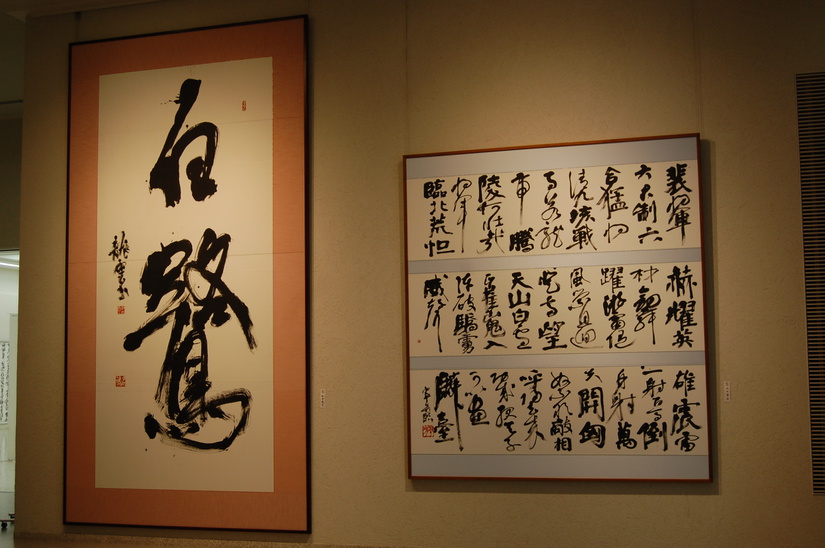 白鷺
裴將軍
大君制六
合猛將
清九垓戰
馬若龍
虎騰
陵何壯哉
將軍
臨北荒烜
赫耀英
材劔舞
躍游電随
風縈且迴
登高望
天山白雪
正崔嵬入
陣破驕虜
威聲
雄震雷
一射百馬倒
再射萬
夫開匈
奴不敢敵相
呼歸去来
功成報天子
可以畫
麟臺